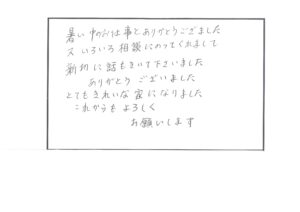 暑い中お仕事とありがとうございました
又いろいろ相談にのってくれまして
親切に話もきいて下さいました
ありがとうございました
とてもきれいな家になりました
これからもよろしく
お願いします